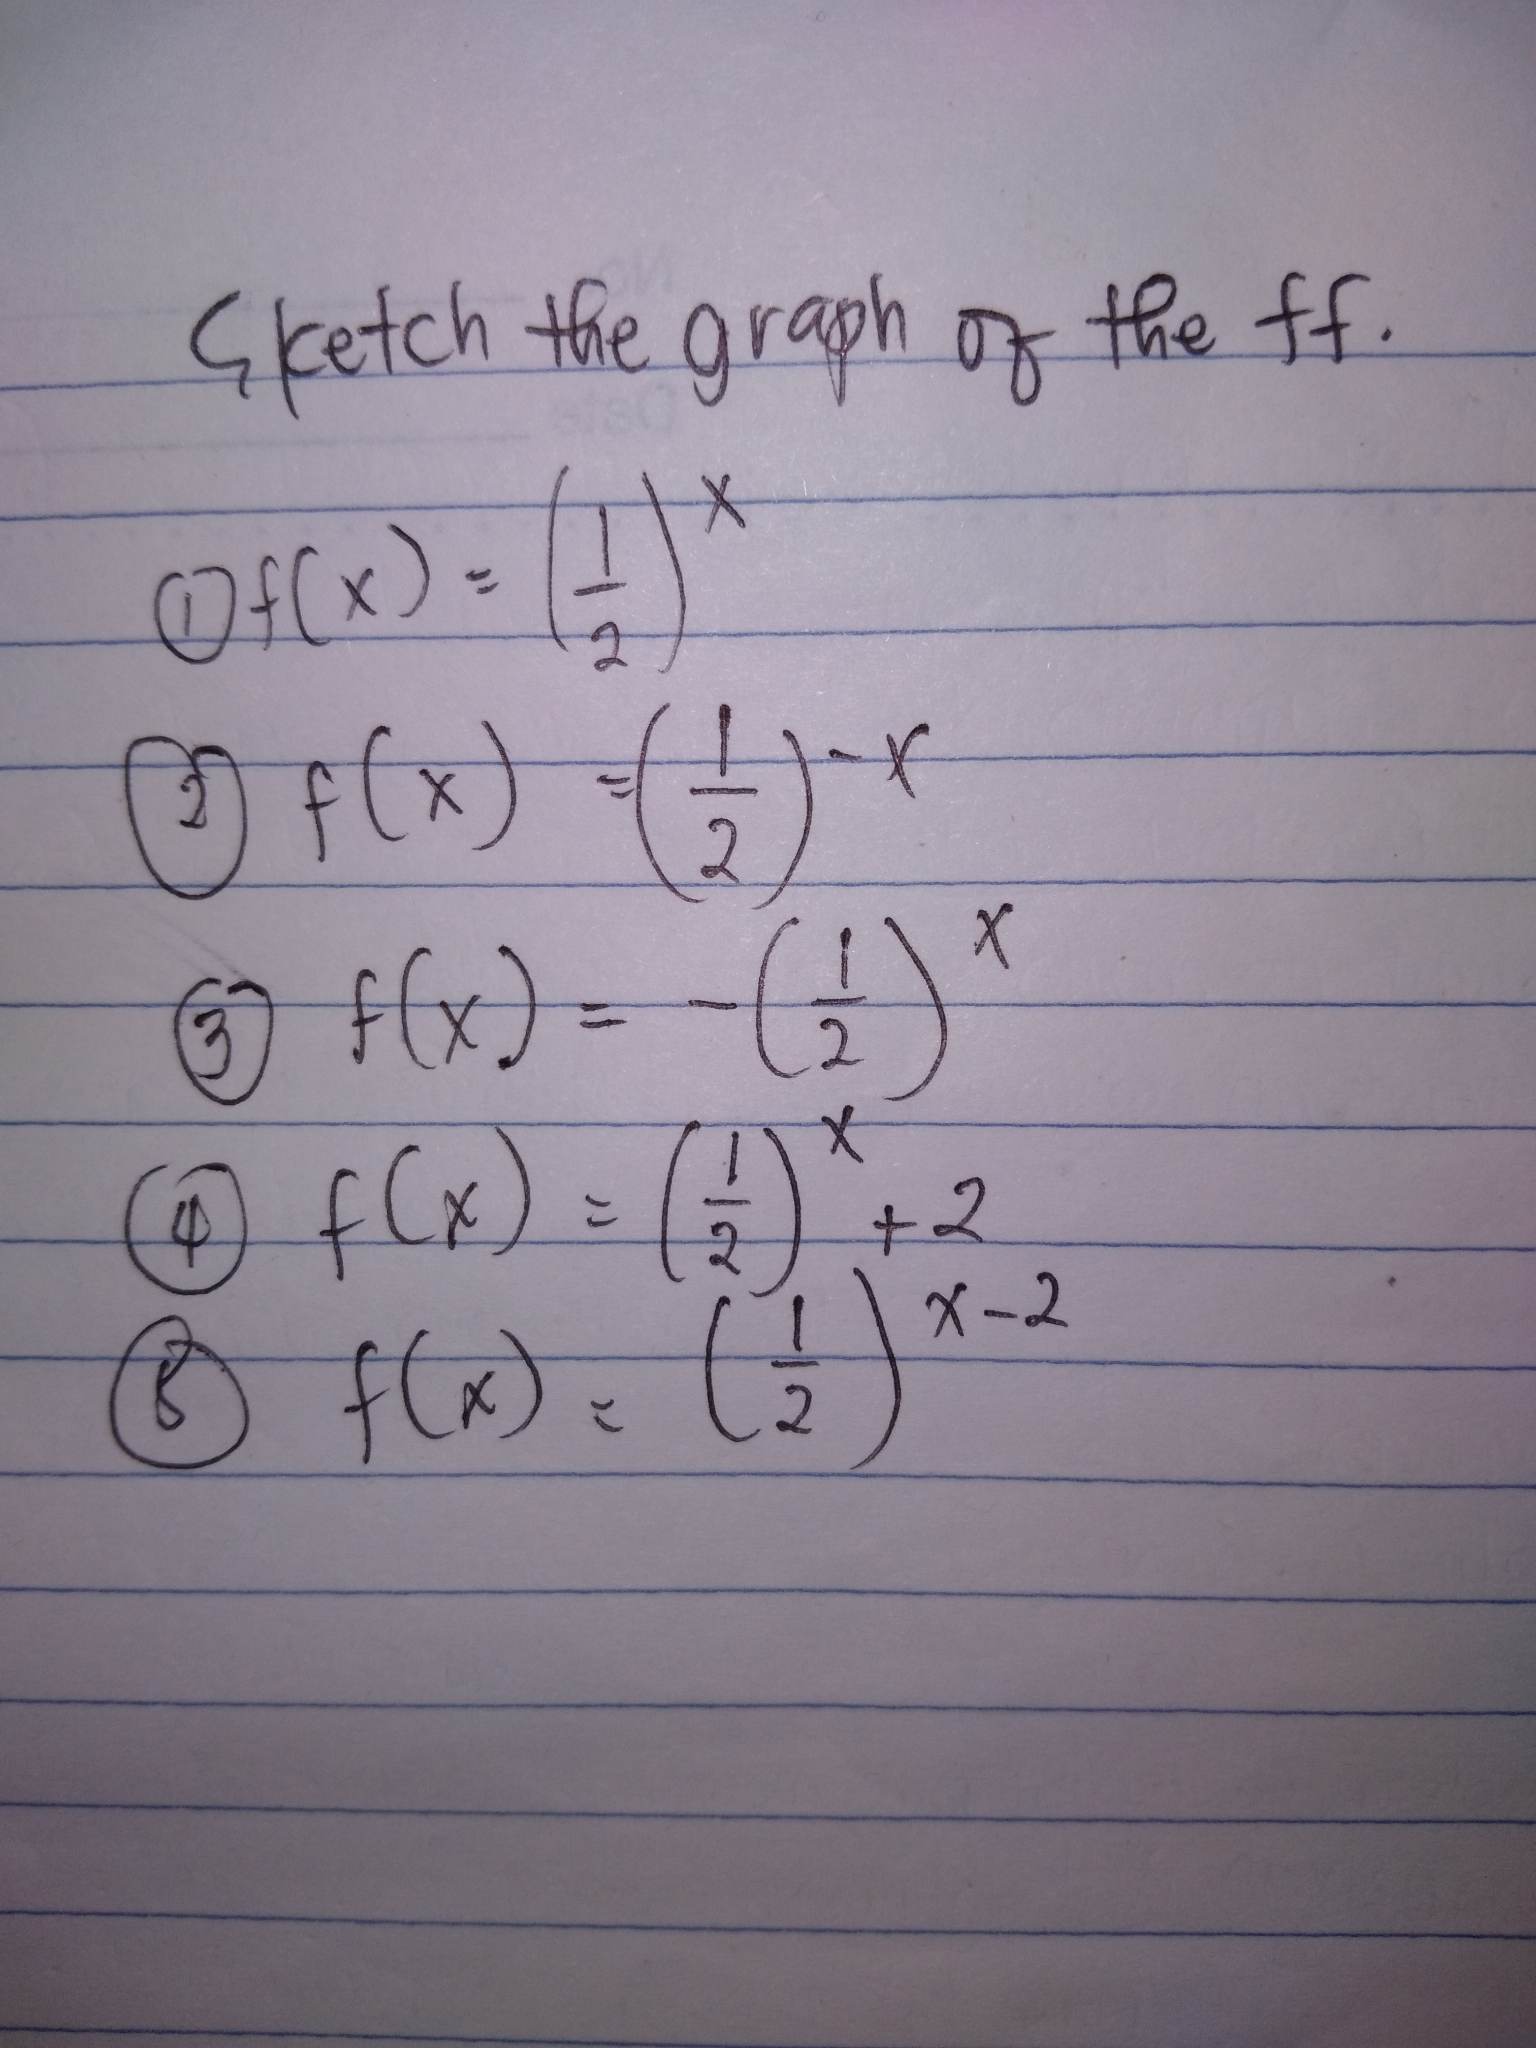 Sketch the graph of the ff.
① f(x) = (1/2)^x
② f(x) = (1/2)^-x
③ f(x) = -(1/2)^x
④ f(x) = (1/2)^x + 2
⑤ f(x) = (1/2)^x-2